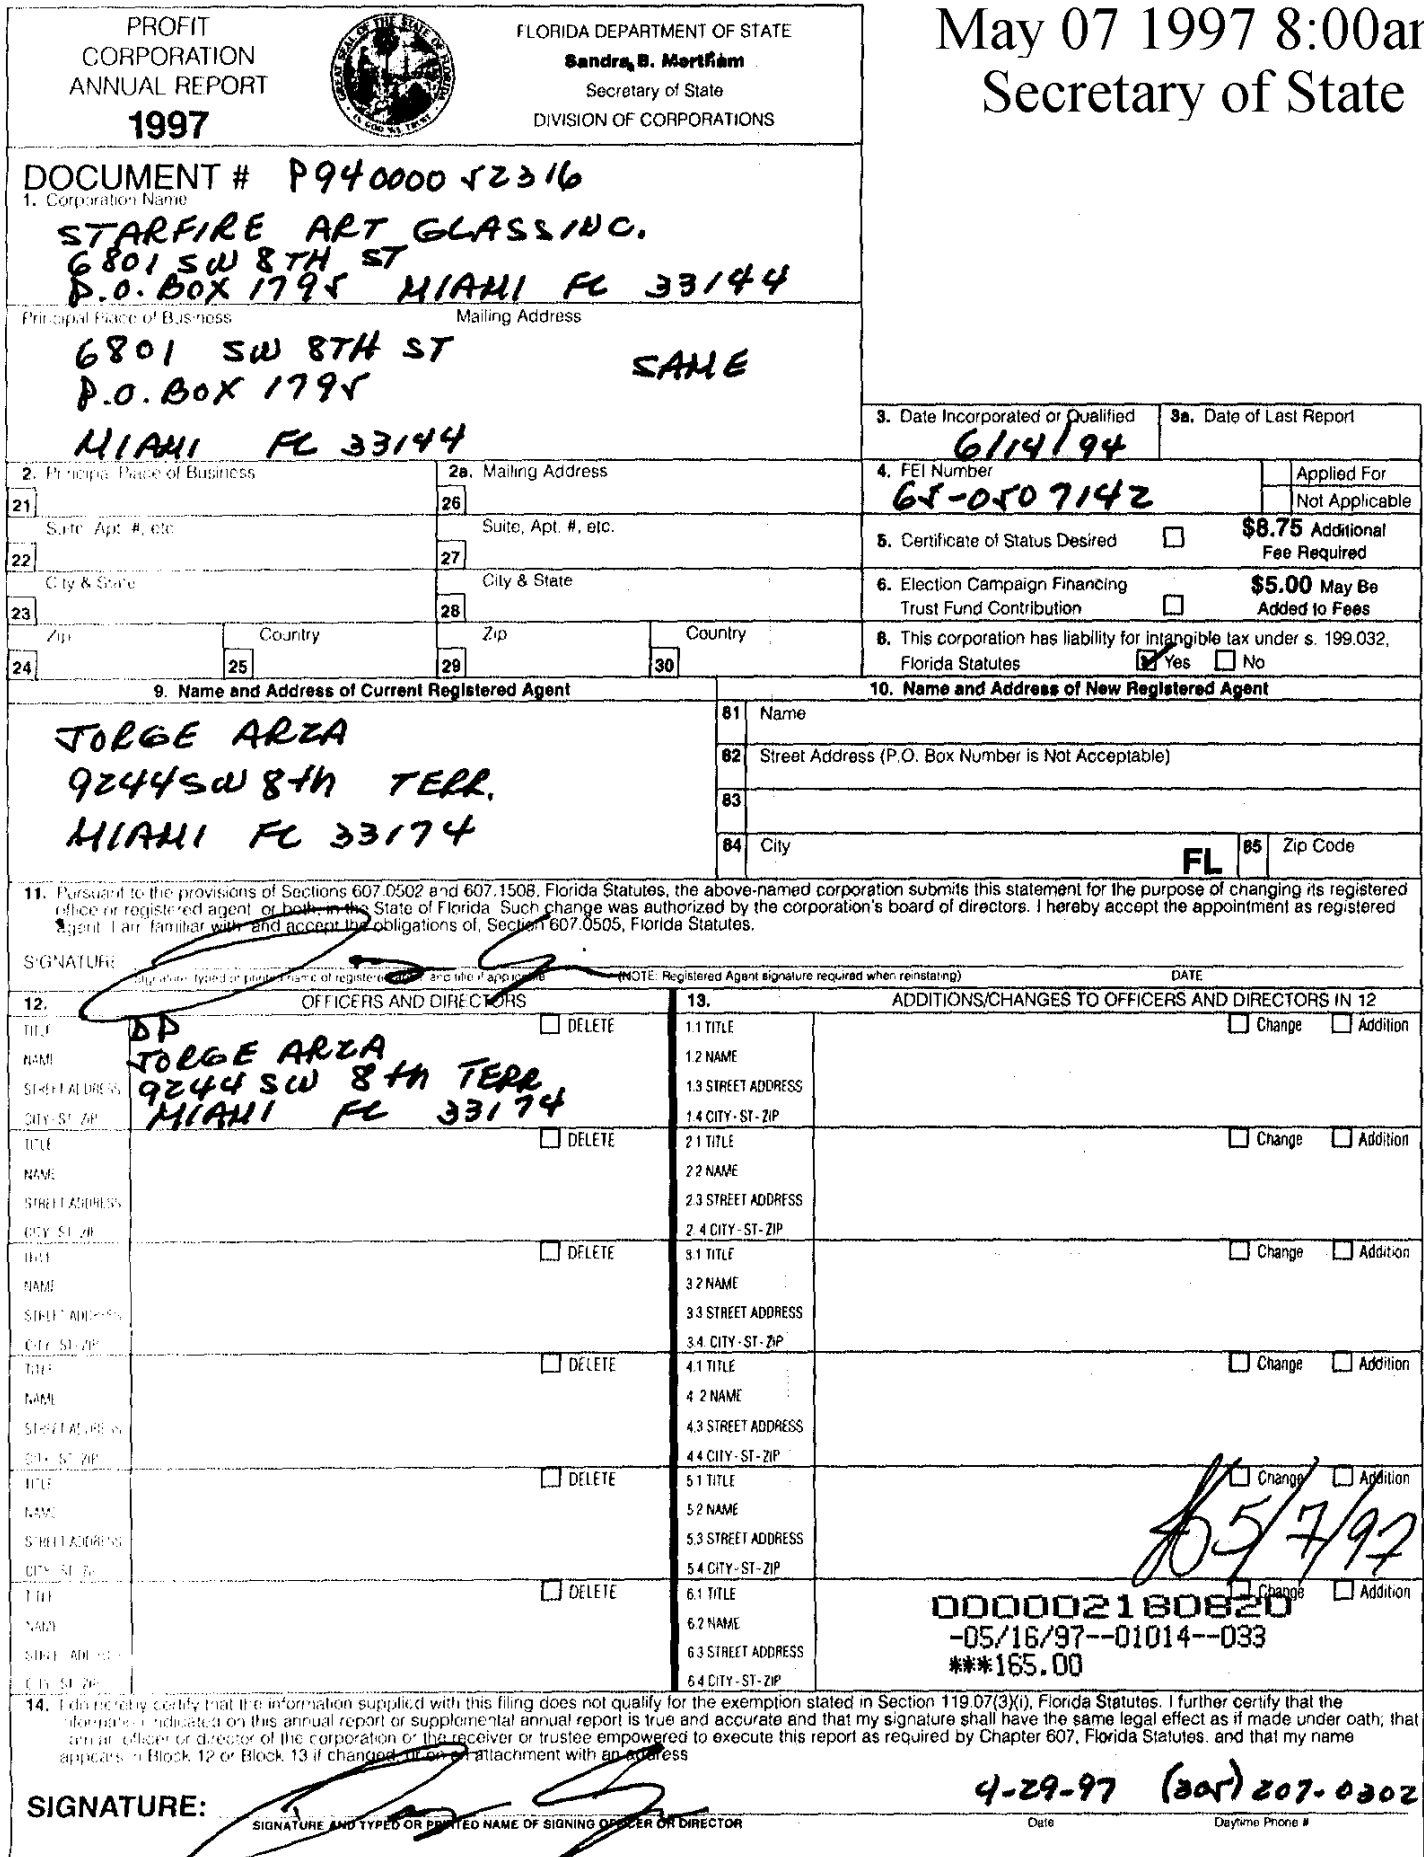 PROFIT
CORPORATION
ANNUAL REPORT
1997
FLORIDA DEPARTMENT OF STATE
Sandra B. Mortham
Secretary of State
DIVISION OF CORPORATIONS
May 07 1997 8:00am
Secretary of State
DOCUMENT # P94000052316
1. Corporation Name
STARFIRE ART GLASS INC.
6801 SW 8TH ST
P.O. BOX 1795 MIAMI FL 33144
Principal Place of Business Mailing Address
6801 SW 8TH ST
SAME
P.O. BOX 1795
MIAMI FL 33144
3. Date Incorporated or Qualified 3a. Date of Last Report
6/14/94
2. Principal Place of Business 2a. Mailing Address 4. FEI Number Applied For
21 26 65-0507142 Not Applicable
Suite, Apt. #, etc. Suite, Apt. #, etc.
22 27
5. Certificate of Status Desired $8.75 Additional
Fee Required
City & State City & State
23 28
6. Election Campaign Financing $5.00 May Be
Trust Fund Contribution Added to Fees
Zip Country Zip Country
24 25 29 30
8. This corporation has liability for intangible tax under s. 199.032,
Florida Statutes Yes No
9. Name and Address of Current Registered Agent
JORGE ARZA
9244 SW 8th TERR.
MIAMI FL 33174
10. Name and Address of New Registered Agent
81 Name
82 Street Address (P.O. Box Number is Not Acceptable)
83
84 City FL 85 Zip Code
11. Pursuant to the provisions of Sections 607.0502 and 607.1508, Florida Statutes, the above-named corporation submits this statement for the purpose of changing its registered
office or registered agent, or both, in the State of Florida. Such change was authorized by the corporation's board of directors. I hereby accept the appointment as registered
agent. I am familiar with, and accept the obligations of, Section 607.0505, Florida Statutes.
SIGNATURE
Signature, typed or printed name of registered agent and title if applicable (NOTE: Registered Agent signature required when reinstating) DATE
12. OFFICERS AND DIRECTORS
TITLE DP DELETE
NAME JORGE ARZA
STREET ADDRESS 9244 SW 8th TERR
CITY-ST-ZIP MIAMI FL 33174
TITLE DELETE
NAME
STREET ADDRESS
CITY-ST-ZIP
TITLE DELETE
NAME
STREET ADDRESS
CITY-ST-ZIP
TITLE DELETE
NAME
STREET ADDRESS
CITY-ST-ZIP
TITLE DELETE
NAME
STREET ADDRESS
CITY-ST-ZIP
TITLE DELETE
NAME
STREET ADDRESS
CITY-ST-ZIP
13. ADDITIONS/CHANGES TO OFFICERS AND DIRECTORS IN 12
1.1 TITLE Change Addition
1.2 NAME
1.3 STREET ADDRESS
1.4 CITY-ST-ZIP
2.1 TITLE Change Addition
2.2 NAME
2.3 STREET ADDRESS
2.4 CITY-ST-ZIP
3.1 TITLE Change Addition
3.2 NAME
3.3 STREET ADDRESS
3.4. CITY-ST-ZIP
4.1 TITLE Change Addition
4.2 NAME
4.3 STREET ADDRESS
4.4 CITY-ST-ZIP
5.1 TITLE Change Addition
5.2 NAME
5.3 STREET ADDRESS
5/7/97
5.4 CITY-ST-ZIP
6.1 TITLE Change Addition
000002180820
6.2 NAME
-05/16/97--01014--033
6.3 STREET ADDRESS
***165.00
6.4 CITY-ST-ZIP
14. I do hereby certify that the information supplied with this filing does not qualify for the exemption stated in Section 119.07(3)(i), Florida Statutes. I further certify that the
information indicated on this annual report or supplemental annual report is true and accurate and that my signature shall have the same legal effect as if made under oath; that
I am an officer or director of the corporation or the receiver or trustee empowered to execute this report as required by Chapter 607, Florida Statutes, and that my name
appears in Block 12 or Block 13 if changed, or on an attachment with an address
SIGNATURE: 4-29-97 (305) 207-0302
SIGNATURE AND TYPED OR PRINTED NAME OF SIGNING OFFICER OR DIRECTOR Date Daytime Phone #